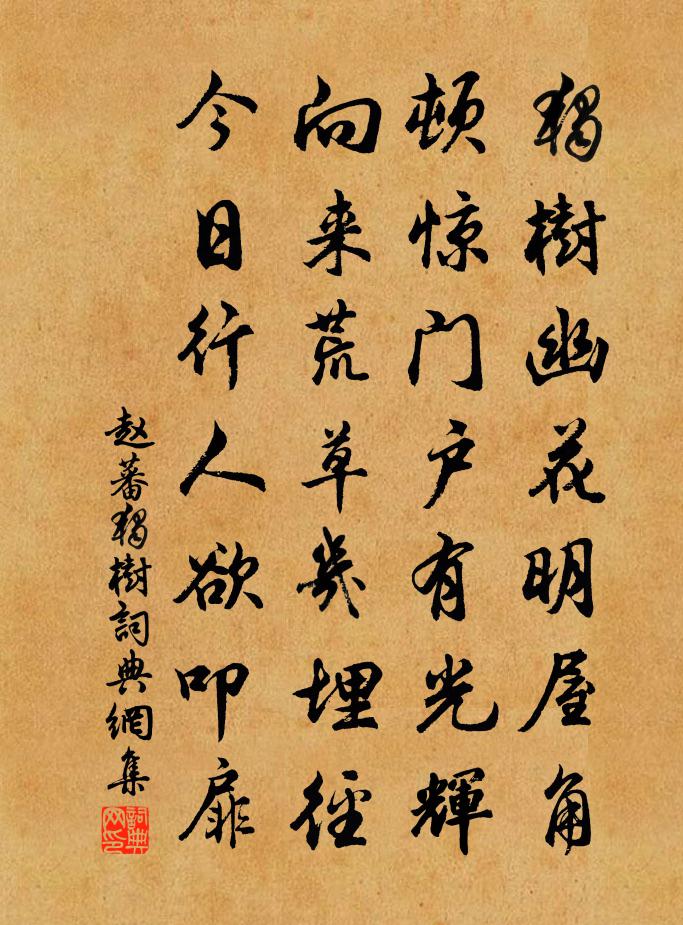 獨樹幽花明屋角
頓惊门户有光輝
向来荒草幾埋徑
今日行人欲叩扉
赵蕃獨樹詞典網集
詞典网印